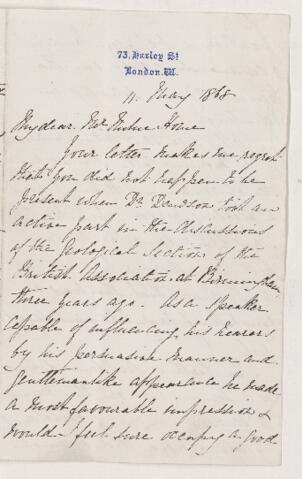 73, Harley St
London. W.
11. May 1868
My dear Mr. Milne Home
Your letter makes me regret
that you did not happen to be
present when Dr. Dawson took an
active part in the discussions
of the Geological Section of the
British Association at Birmingham
three years ago. As a speaker
capable of influencing his hearers
by his persuasive manner and
gentlemanlike appearance he made
a most favourable impression &
would I feel sure occupy a good